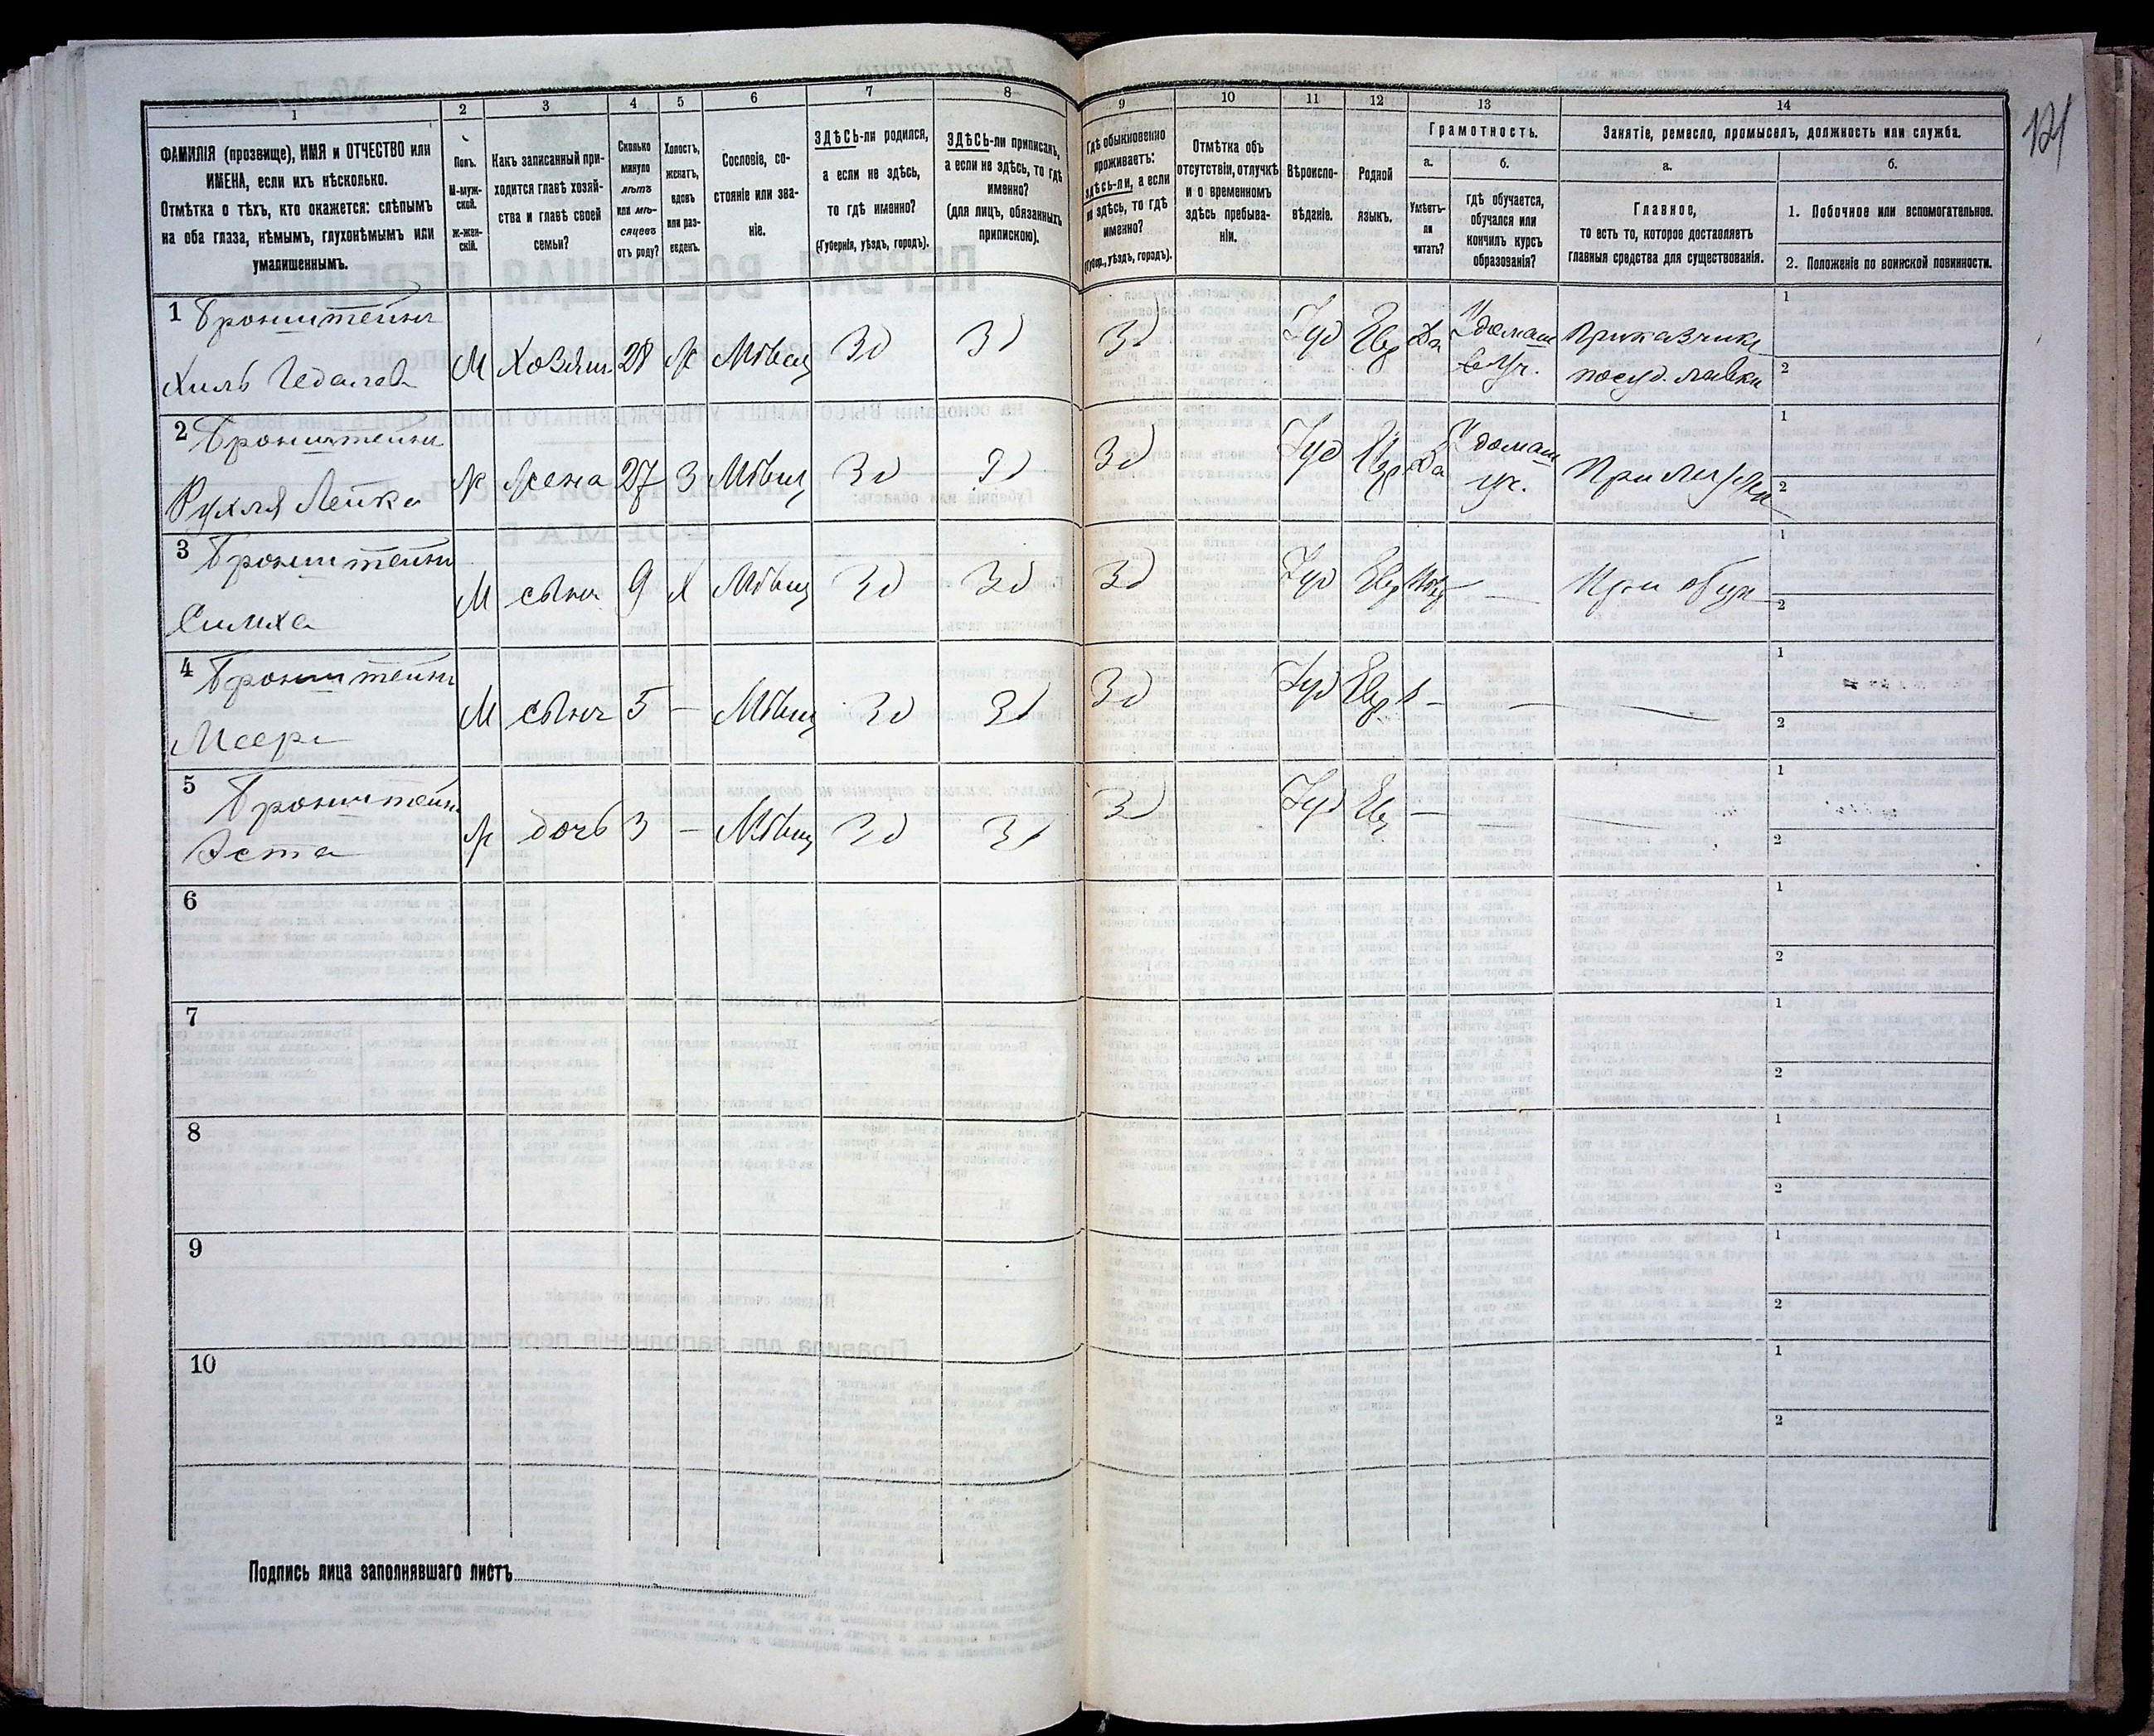 121
1 2 3 4 5 6 7 8 9 10 11 12 13 14
ФАМИЛІЯ (прозвище), ИМЯ и ОТЧЕСТВО или
ИМЕНА, если ихъ нѣсколько.
Отмѣтка о тѣхъ, кто окажется: слѣпымъ
на оба глаза, нѣмымъ, глухонѣмымъ или
умалишеннымъ.
Полъ.
М-муж-
ской.
Ж-жен-
скій.
Какъ записанный при-
ходится главѣ хозяй-
ства и главѣ своей
семьи?
Сколько
минуло
лѣтъ
или мѣ-
сяцевъ
отъ роду?
Холостъ,
женатъ,
вдовъ
или раз-
веденъ.
Сословіе, со-
стояніе или зва-
ніе.
ЗДѢСЬ-ли родился,
а если не здѣсь,
то гдѣ именно?
(Губернія, уѣздъ, городъ).
ЗДѢСЬ-ли приписанъ,
а если не здѣсь, то гдѣ
именно?
(для лицъ, обязанныхъ
припискою).
Гдѣ обыкновенно
проживаетъ:
здѣсь-ли, а если
не здѣсь, то гдѣ
именно?
(Губер., уѣздъ, городъ).
Отмѣтка объ
отсутствіи, отлучкѣ
и о временномъ
здѣсь пребыва-
ніи.
Вѣроиспо-
вѣданіе.
Родной
языкъ.
Грамотность.
а.
Умѣетъ-
ли
читать?
б.
гдѣ обучается,
обучался или
кончилъ курсъ
образованія?
Занятіе, ремесло, промыселъ, должность или служба.
а.
Главное,
то есть то, которое доставляетъ
главныя средства для существованія.
б.
1. Побочное или вспомогательное.
2. Положеніе по воинской повинности.
1 Бронштейнъ
Хиль М Хозяинъ 28 Ж Мѣщ Зд Зд Зд Іуд Евр Да
Приказчикъ
посуд. лавки
1
2
2 Бронштейнъ
Рухля Лейка Ж Жена 27 З Мѣщ Зд Зд Зд Іуд Евр Да
При мужѣ
1
2
3 Бронштейнъ
Симха М сынъ 9 Х Мѣщ Зд Зд Зд Іуд Евр —
При отцѣ
1
2
4 Бронштейнъ
Мееръ М сынъ 5 — Мѣщ Зд Зд Зд Іуд Евр — —
1
2
5 Бронштейнъ
Эста Ж дочь 3 — Мѣщ Зд Зд Зд Іуд Евр — — —
1
2
6
1
2
7
1
2
8
1
2
9
1
2
10
1
2
Подпись лица заполнявшаго листъ